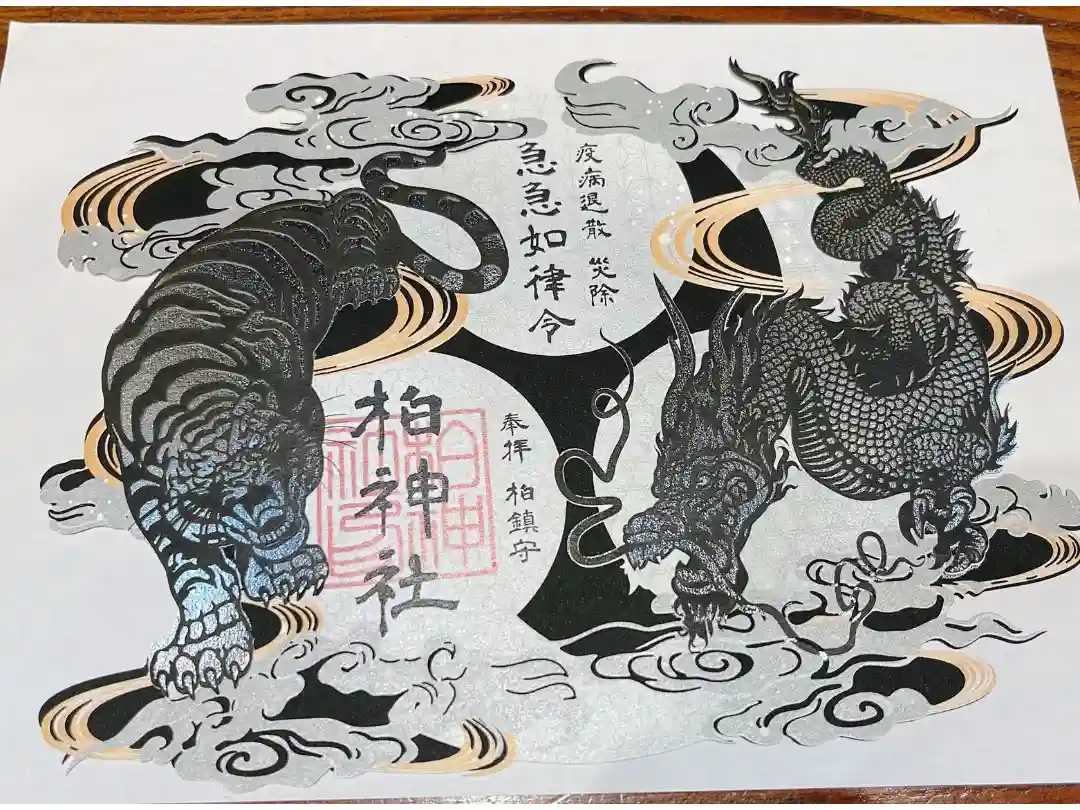 疫病退散 災除
急急如律令
奉拝 柏鎮守
柏神社
柏神社之印